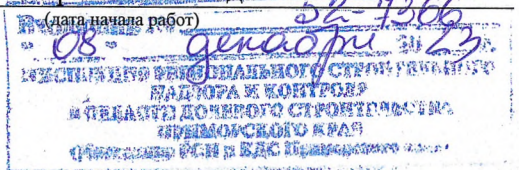 (дата начала работ)
52-7366
" 08 " декабря 20 23 г.
ИНСПЕКЦИЯ РЕГИОНАЛЬНОГО СТРОИТЕЛЬНОГО
НАДЗОРА И КОНТРОЛЯ
В ОБЛАСТИ ДОЛЕВОГО СТРОИТЕЛЬСТВА
ПРИМОРСКОГО КРАЯ
РСН и КДС Приморского